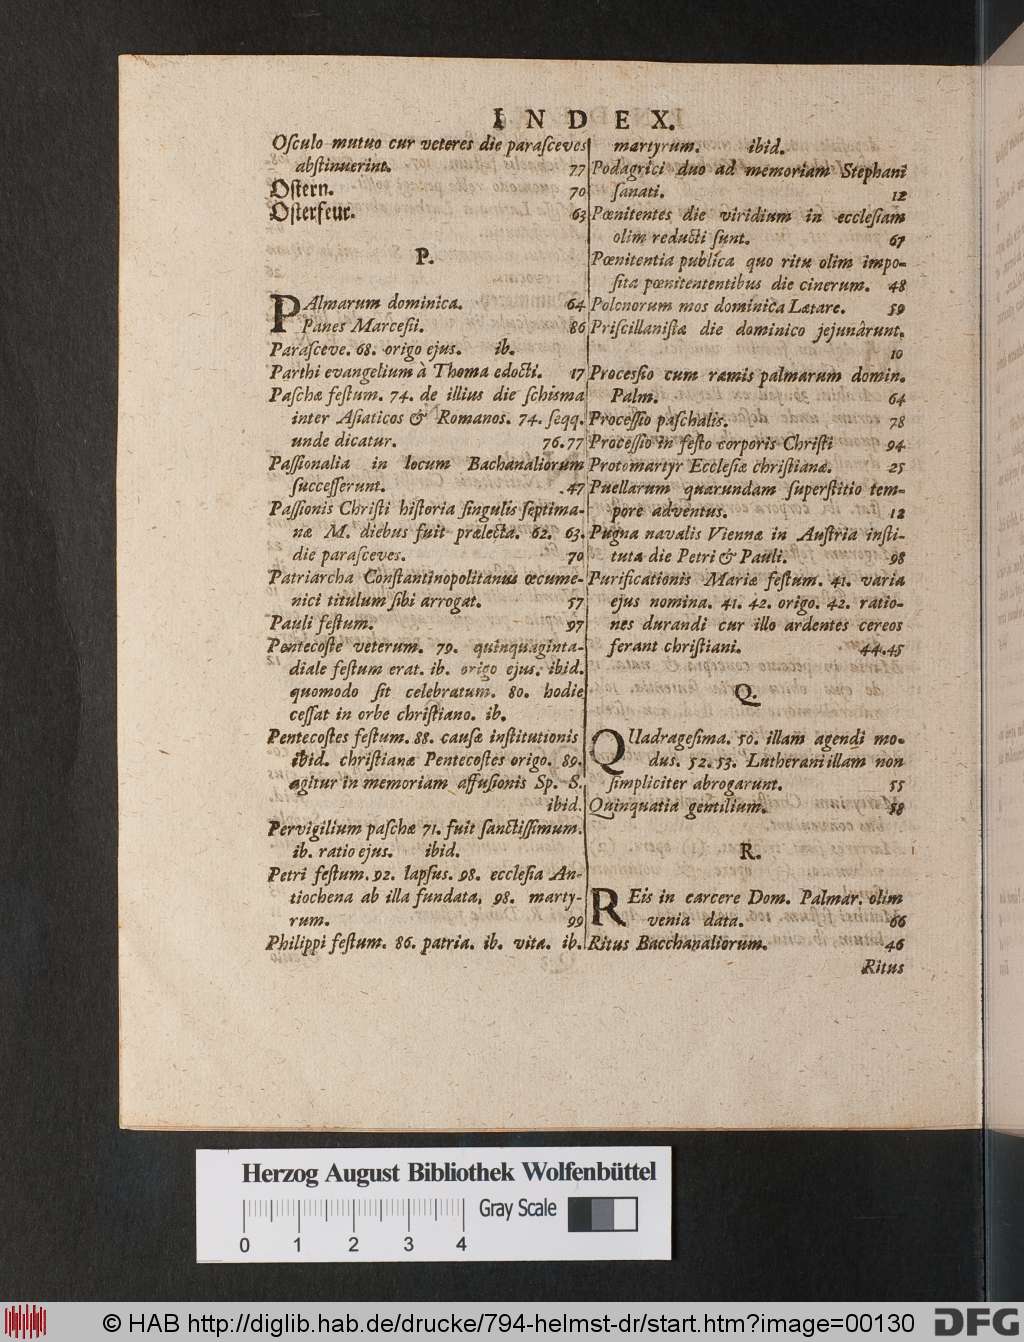 INDEX.
Oſculo mutuo cur veteres die paraſceves
abſtinuerint. 77
Oſtern. 70
Oſterfeur. 63
P.
PAlmarum dominica. 64
Panes Marceſii. 86
Paraſceve. 68. origo ejus. ib.
Parthi evangelium à Thoma edocti. 17
Paſchæ feſtum. 74. de illius die ſchisma
inter Aſiaticos & Romanos. 74. ſeqq.
unde dicatur. 76.77
Paſſionalia in locum Bachanaliorum
ſucceſſerunt. 47
Paſſionis Chriſti hiſtoria ſingulis ſeptima-
næ M. diebus fuit prælecta. 62. 63.
die paraſceves. 70
Patriarcha Conſtantinopolitanus œcume-
nici titulum ſibi arrogat. 57
Pauli feſtum. 97
Pentecoſte veterum. 79. quinquaginta-
diale feſtum erat. ib. origo ejus. ibid.
quomodo ſit celebratum. 80. hodie
ceſſat in orbe chriſtiano. ib.
Pentecoſtes feſtum. 88. cauſæ inſtitutionis
ibid. chriſtianæ Pentecoſtes origo. 89.
agitur in memoriam affuſionis Sp. S.
ibid.
Pervigilium paſchæ 71. fuit ſanctiſſimum.
ib. ratio ejus. ibid.
Petri feſtum. 92. lapſus. 98. eccleſia An-
tiochena ab illa fundata, 98. marty-
rum. 99
Philippi feſtum. 86. patria. ib. vita. ib.
martyrum. ibid.
Podagrici duo ad memoriam Stephani
ſanati. 12
Pœnitentes die viridium in eccleſiam
olim reducti ſunt. 67
Pœnitentia publica quo ritu olim impo-
ſita pœnitententibus die cinerum. 48
Polonorum mos dominica Lætare. 59
Priſcillaniſtæ die dominico jejunârunt.
10
Proceſſio cum ramis palmarum domin.
Palm. 64
Proceſſio paſchalis. 78
Proceſſio in feſto corporis Chriſti 94
Protomartyr Eccleſiæ chriſtianæ. 25
Puellarum quarundam ſuperſtitio tem-
pore adventus. 12
Pugna navalis Viennæ in Auſtria inſti-
tuta die Petri & Pauli. 98
Purificationis Mariæ feſtum. 41. varia
ejus nomina. 41. 42. origo. 42. ratio-
nes durandi cur illo ardentes cereos
ferant chriſtiani. 44.45
Q.
QUadrageſima. 50. illam agendi mo-
dus. 52. 53. Lutherani illam non
ſimpliciter abrogarunt. 55
Quinquatia gentilium. 58
R.
REis in carcere Dom. Palmar. olim
venia data. 66
Ritus Bacchanaliorum. 46
Ritus
Herzog August Bibliothek Wolfenbüttel
Gray Scale
0 1 2 3 4
© HAB http://diglib.hab.de/drucke/794-helmst-dr/start.htm?image=00130
DFG